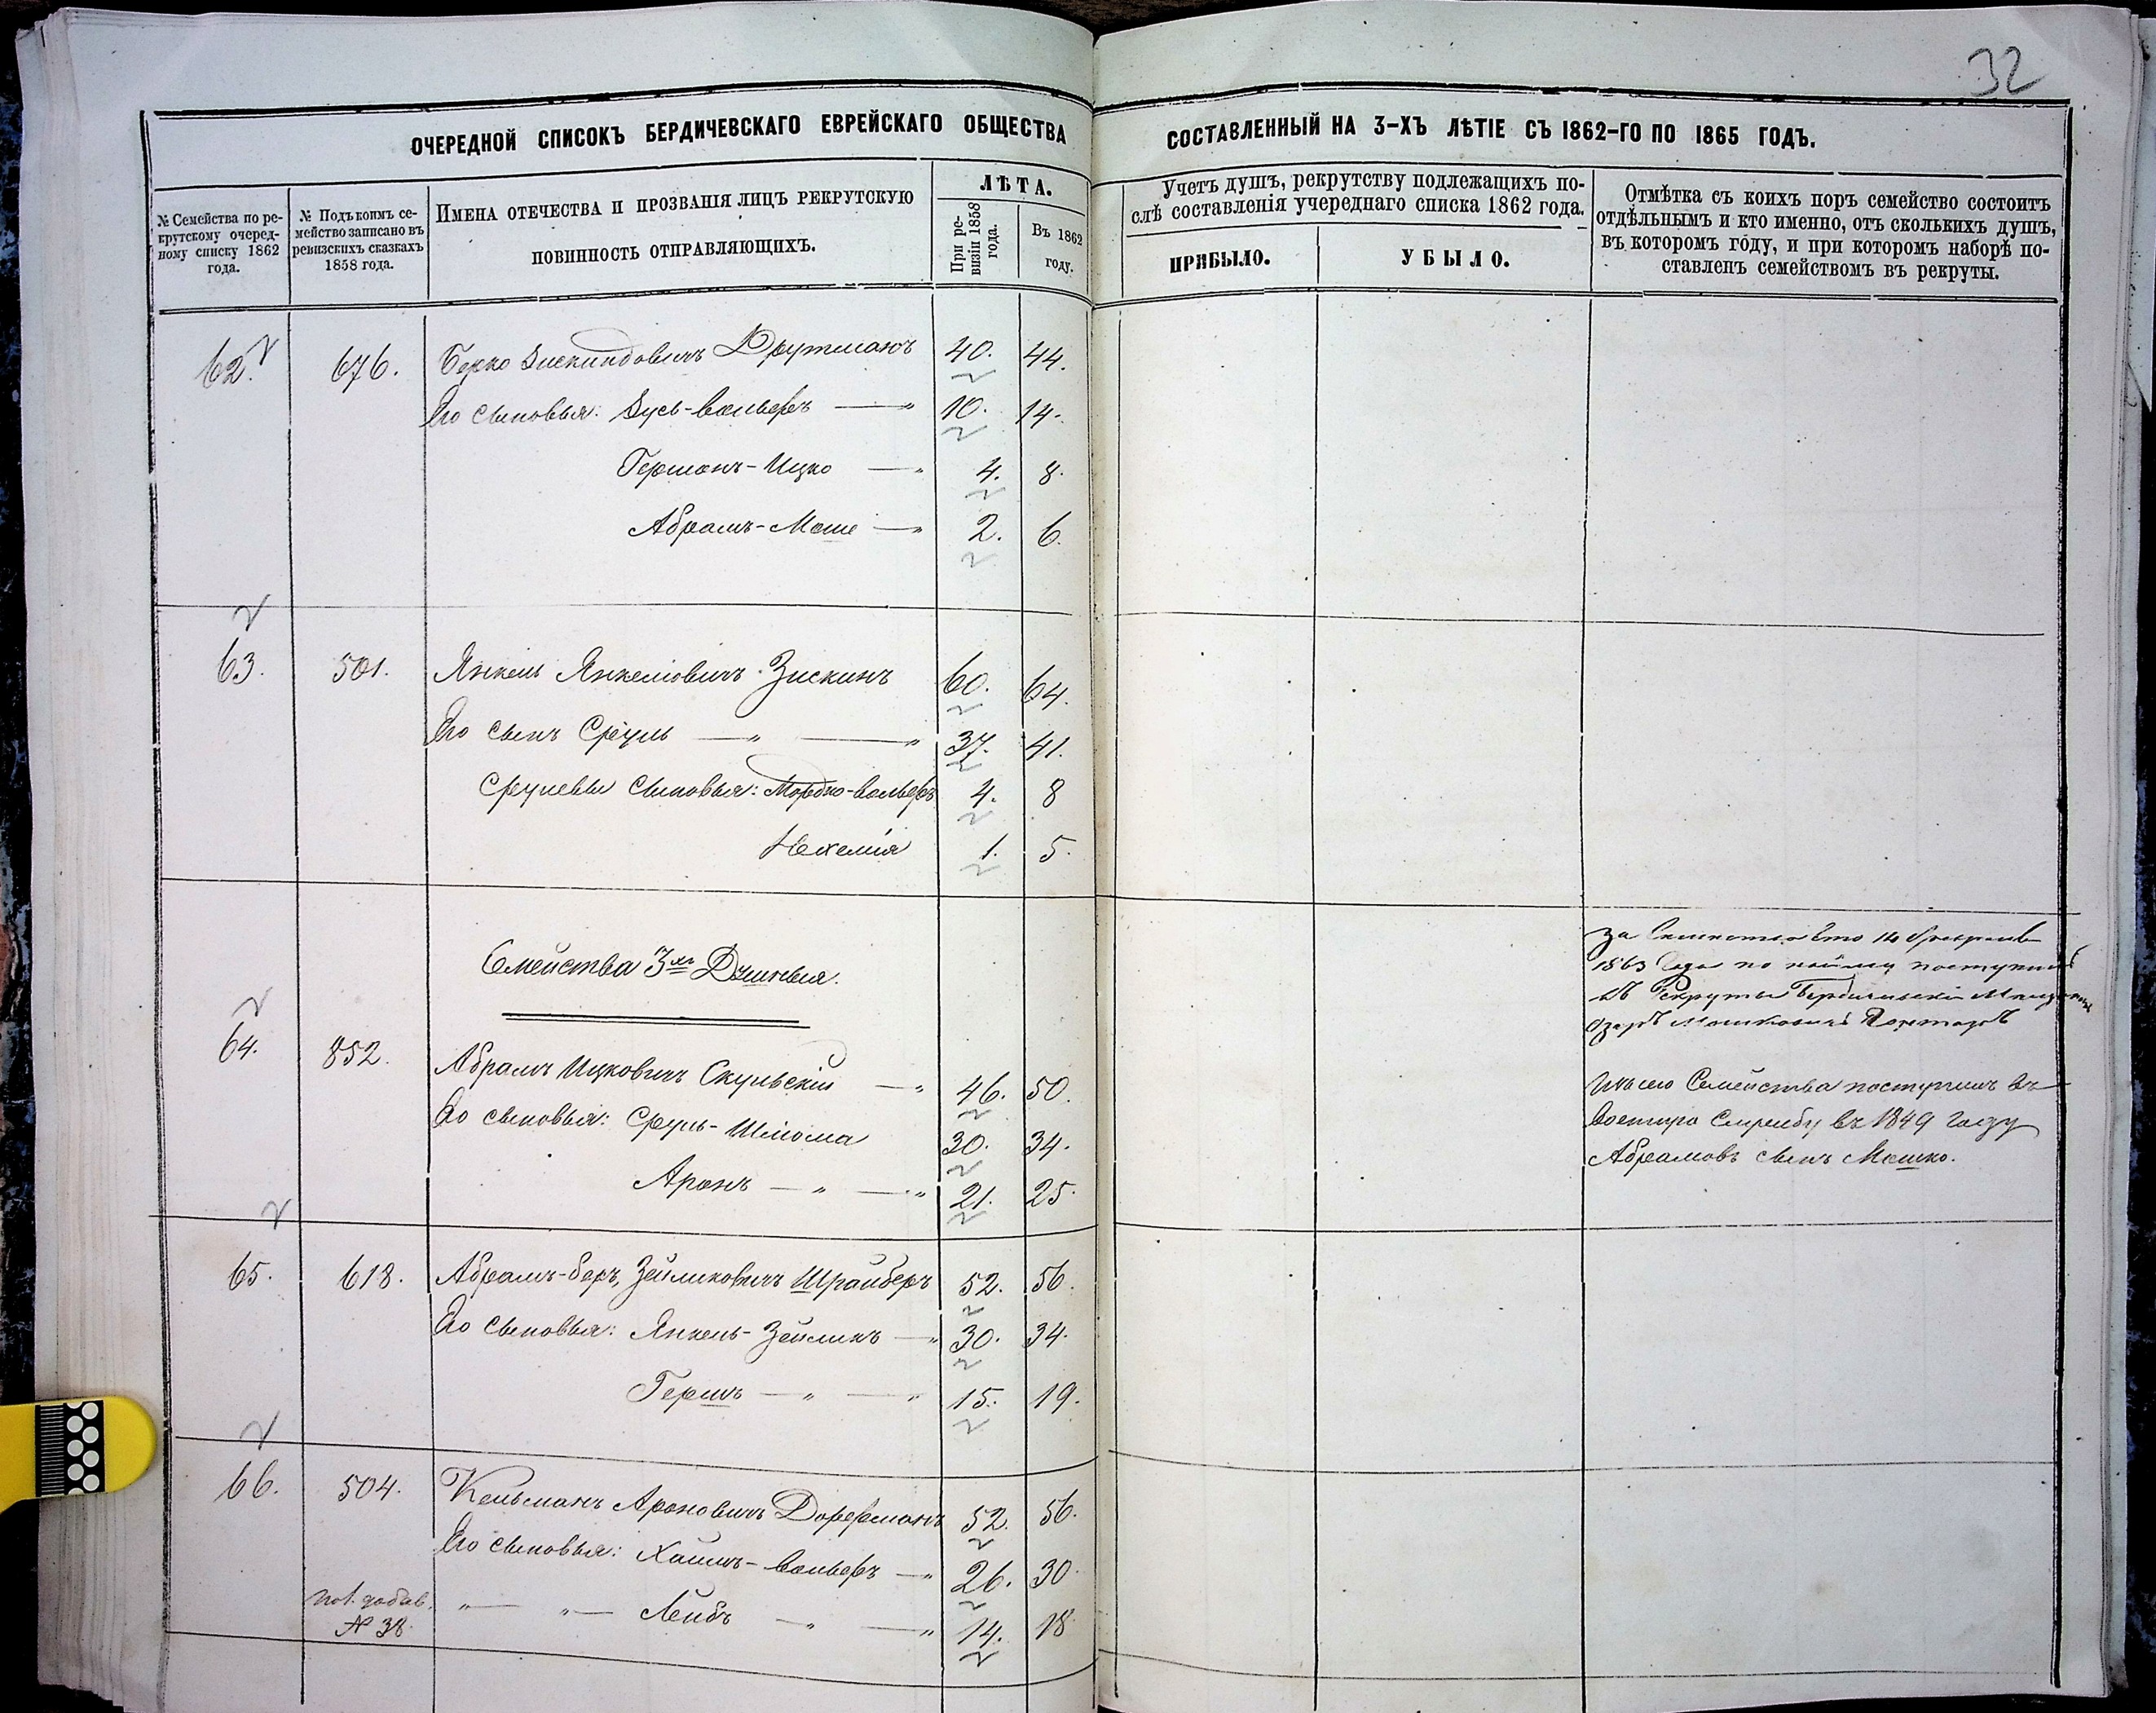 32
ОЧЕРЕДНОЙ СПИСОКЪ БЕРДИЧЕВСКАГО ЕВРЕЙСКАГО ОБЩЕСТВА
СОСТАВЛЕННЫЙ НА 3-ХЪ ЛѢТІЕ СЪ 1862-ГО ПО 1865 ГОДЪ.
№ Семейства по ре-
крутскому очеред-
ному списку 1862
года.
№ Подъ коимъ се-
мейство записано въ
ревизскихъ сказкахъ
1858 года.
ИМЕНА ОТЕЧЕСТВА И ПРОЗВАНІЯ ЛИЦЪ РЕКРУТСКУЮ
ПОВИННОСТЬ ОТПРАВЛЯЮЩИХЪ.
ЛѢТА.
При ре-
визіи 1858
года.
Въ 1862
году.
Учетъ душъ, рекрутству подлежащихъ по-
слѣ составленія учереднаго списка 1862 года.
ПРИБЫЛО.
УБЫЛО.
Отмѣтка съ коихъ поръ семейство состоитъ
отдѣльнымъ и кто именно, отъ сколькихъ душъ,
въ которомъ году, и при которомъ наборѣ по-
ставленъ семействомъ въ рекруты.
62. 676. Берко Зискиндовичъ Друтманъ 40. 44.
Его сыновья: Зусь-Вольфъ — " 10. 14.
Гершонъ-Ицко — " 4. 8.
Абрамъ-Моше — " 2. 6.
63. 501. Янкель Янкеліовичъ Зискинъ 60. 64.
Его сынъ Сруль — " — " 37. 41.
Срулевы сыновья: Мордко-Вольфъ 4. 8
Нехемія 1. 5.
Семейства 3хъ Душныя.
За Семейство это 14 Февраля
1863 года по найму поступилъ
въ Рекруты Бердичевскій
Мошковичъ
64. 852. Абрамъ Ицковичъ Скульскій — " 46. 50.
Его сыновья: Сруль-Шліома 30. 34.
Аронъ — " — " 21. 25.
Изъ сего Семейства поступилъ въ
Военную Службу въ 1849 году
Абрамовъ сынъ Мошко.
65. 618. Абрамъ-Беръ Зейликовичъ Шрайберъ 52. 56.
Его сыновья: Янкель-Зейликъ — " 30. 34.
Гершъ — " — " 15. 19.
66. 504. Кельманъ Ароновичъ Дорфманъ 52. 56.
Его сыновья: Хаимъ-Вольфъ — " 26. 30.
по 1. добав. " — " — Лейбъ — " — " 14. 18.
№ 38.